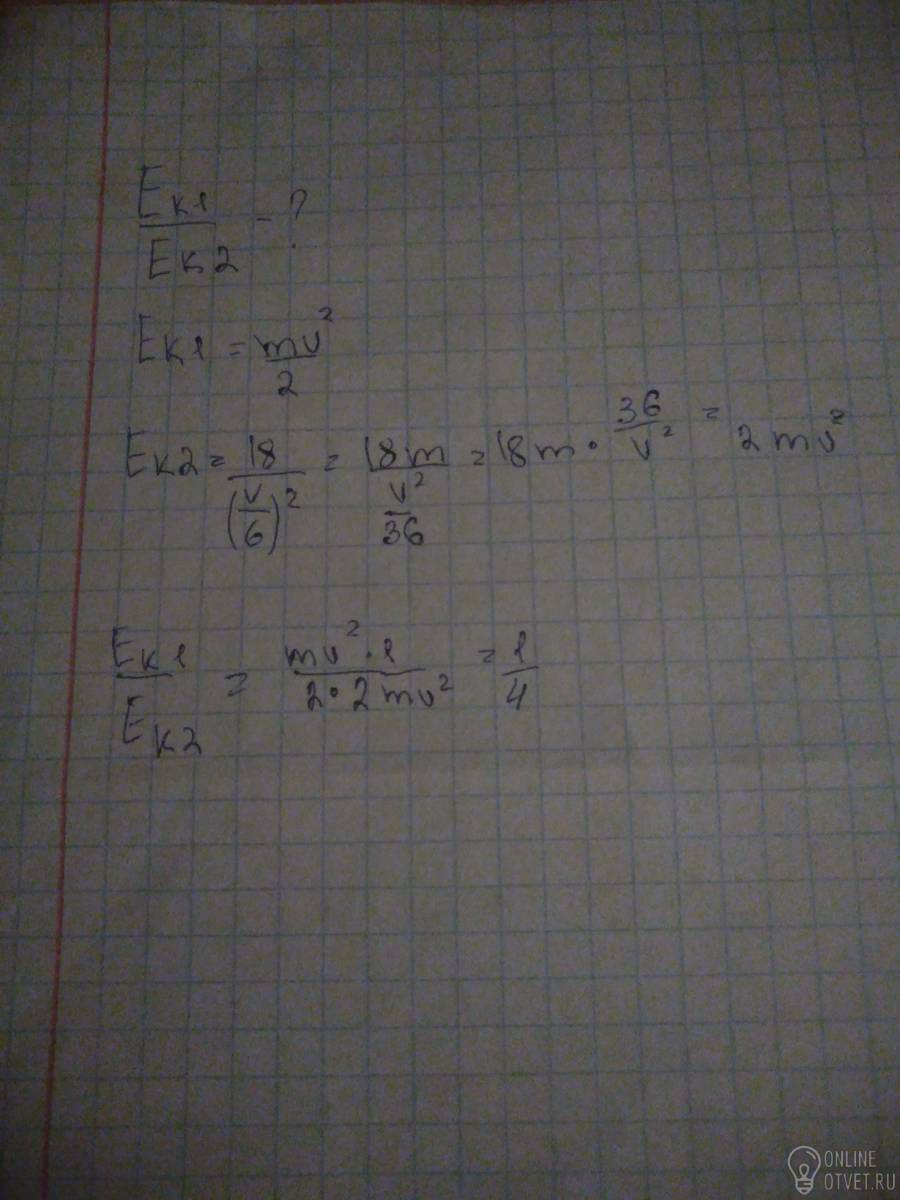 Eк1
Eк2 - ?
Eк1 = mv²/2
Eк2 = 18/(v/6)² = 18m/(v²/36) = 18m · 36/v² = 2mv²
Eк1/Eк2 = mv² · 1/2 · 2mv² = 1/4
ONLINE
OTVET.RU